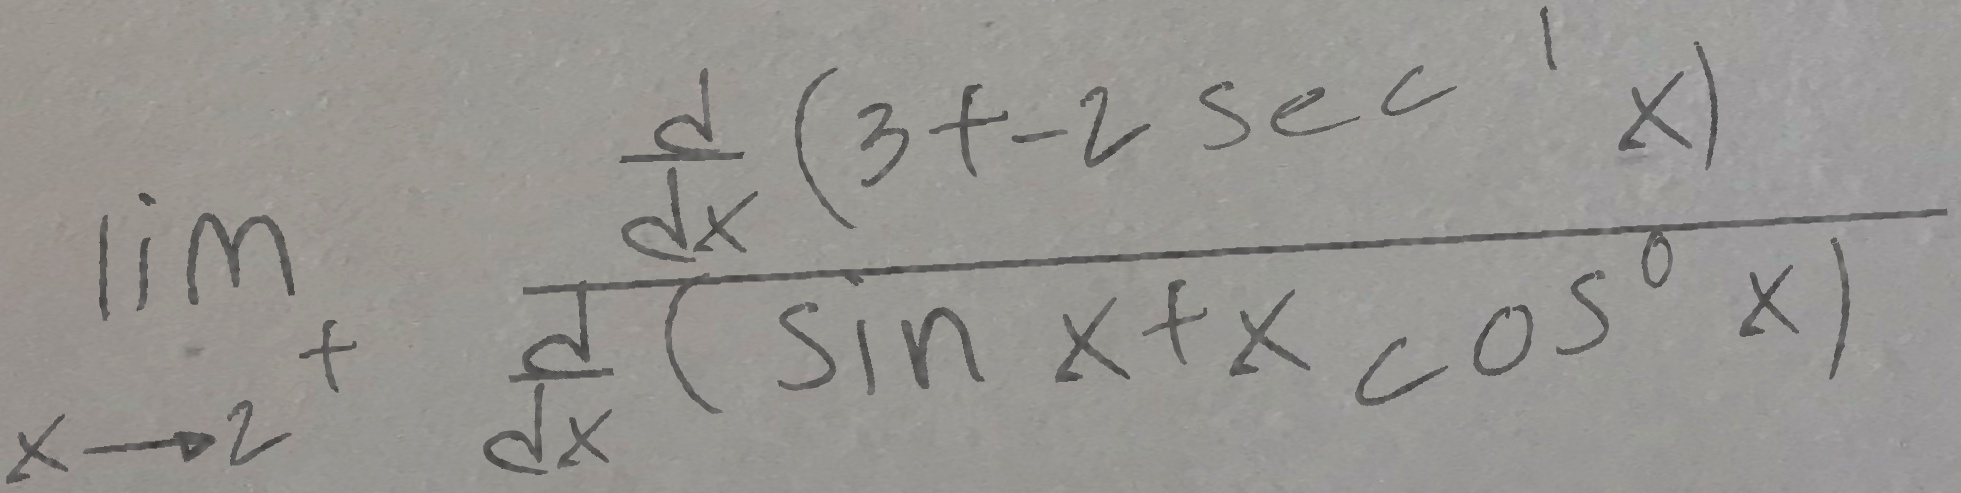 \lim_{x \to 2^+} \frac{\frac{d}{dx}(3+-2\sec^1 x)}{\frac{d}{dx}(\sin x+x\cos^0 x)}